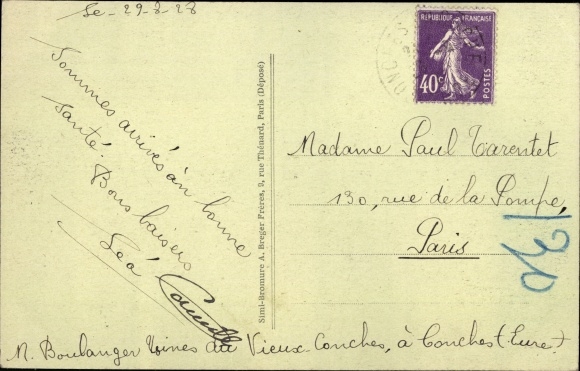 Le - 29-8-28
Sommes arrivés en bonne
santé. Bons baisers
Léo Camille
M. Boulanger Usines du Vieux-Conches, à Conches (Eure)
Simi-Bromure A. Breger Frères, 9, rue Thénard, Paris (Déposé)
RÉPUBLIQUE FRANÇAISE
40c
POSTES
Madame Paul Tarentet
130, rue de la Pompe,
Paris
130